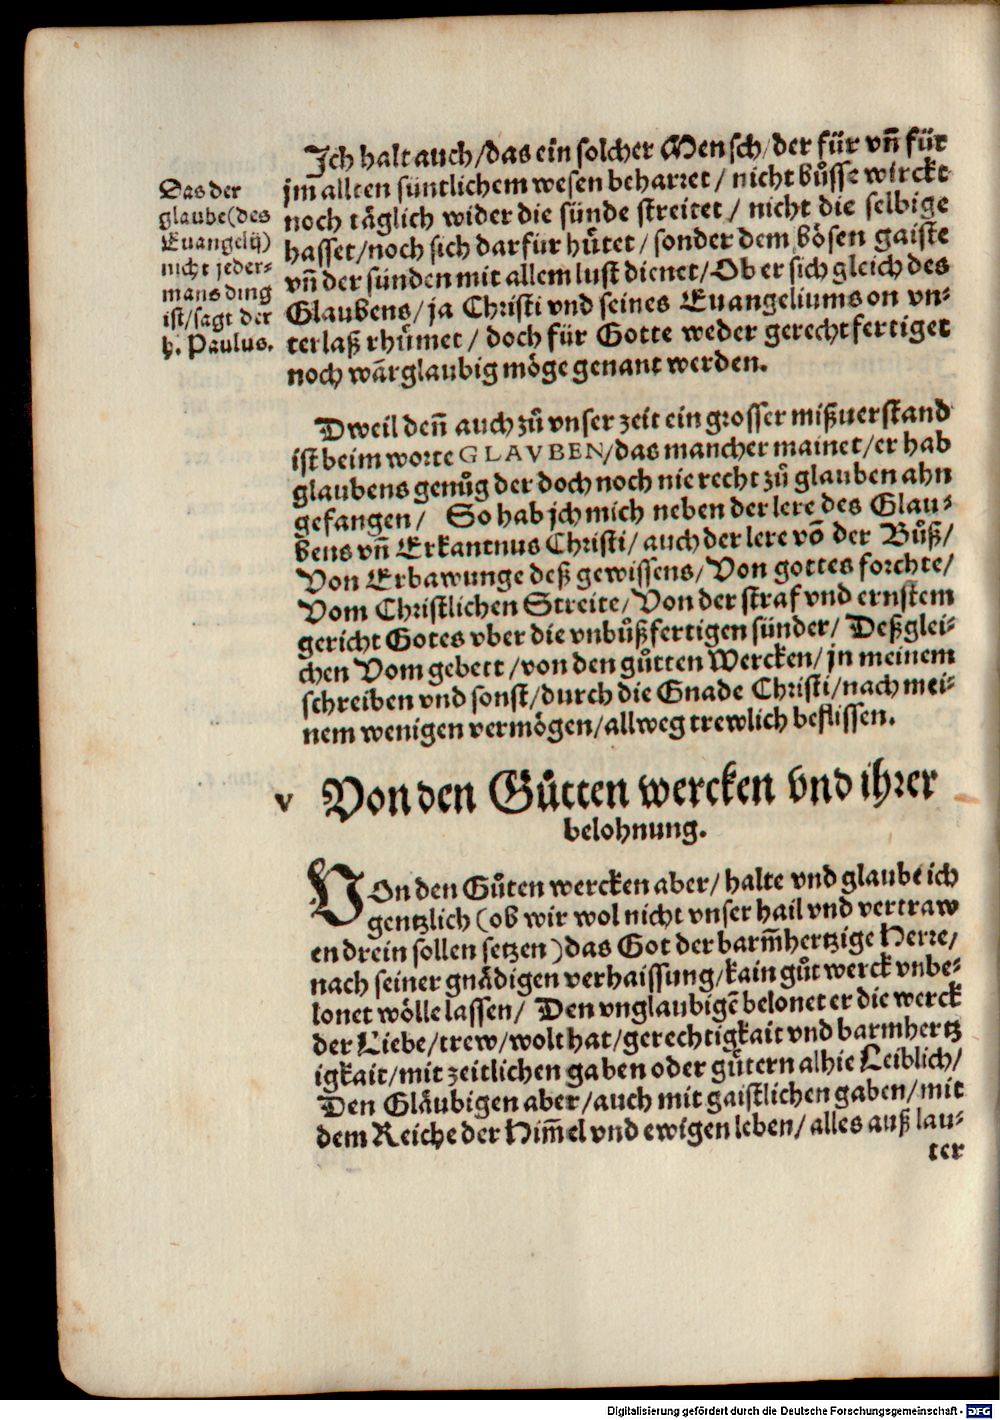 Das der
glaube (des
Euangelij)
nicht jeder⸗
mans ding
ist/sagt der
h. Paulus.
Ich halt auch/das ein solcher Mensch/der für vñ für
jm allten süntlichem wesen beharret/ nicht bůsse wirckt
noch täglich wider die sünde streitet/ nicht die selbige
hasset/noch sich darfür hůtet/ sonder dem bösen gaiste
vñ der sünden mit allem lust dienet/Ob er sich gleich des
Glaubens/ja Christi vnd seines Euangeliums on vn⸗
terlaß rhůmet/ doch für Gotte weder gerechtfertiget
noch wārglaubig möge genant werden.
Dweil deñ auch zů vnser zeit ein grosser mißuerstand
ist beim worte GLAVBEN/das mancher mainet/er hab
glaubens genůg der doch noch nie recht zů glauben ahn
gefangen/ So hab jch mich neben der lere des Glau⸗
bens vñ Erkantnus Christi/ auch der lere vō der Bůß/
Von Erbawunge deß gewissens/Von gottes forchte/
Vom Christlichen Streite/Von der straf vnd ernstem
gericht Gotes vber die vnbůßfertigen sünder/ Deßglei⸗
chen Vom gebett/von den gůtten Wercken/ jn meinem
schreiben vnd sonst/durch die Gnade Christi/nach mei⸗
nem wenigen vermögen/allweg trewlich beflissen.
v Von den Gůtten wercken vnd ihrer
belohnung.
VOn den Gůten wercken aber/ halte vnd glaube ich
gentzlich (ob wir wol nicht vnser hail vnd vertraw
en drein sollen setzen) das Got der barm̄hertzige Herre/
nach seiner gnädigen verhaissung/kain gůt werck vnbe⸗
lonet wölle lassen/ Den vnglaubigē belonet er die werck
der Liebe/trew/wolthat/gerechtigkait vnd barmhertz
igkait/mit zeitlichen gaben oder gůtern alhie Leiblich/
Den Gläubigen aber/auch mit gaistlichen gaben/mit
dem Reiche der Him̄el vnd ewigen leben/ alles auß lau⸗
ter
Digitalisierung gefördert durch die Deutsche Forschungsgemeinschaft - DFG